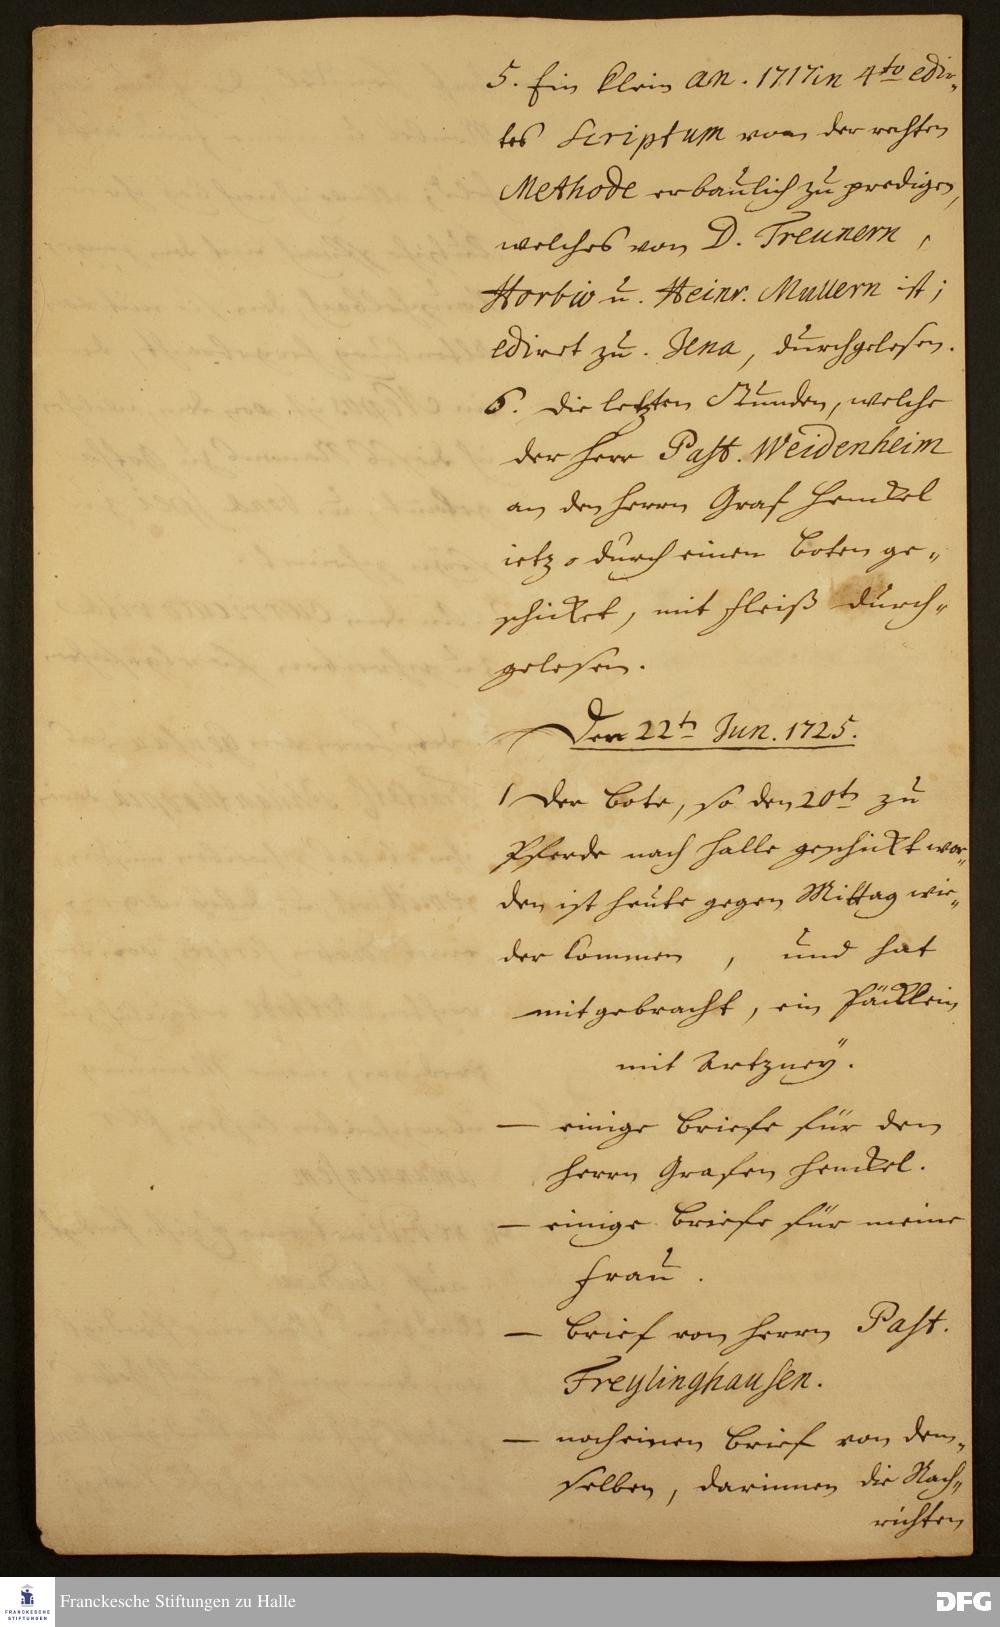 5. Ein klein an. 1717 in 4to edir-
tes Scriptum von der rechten
Methode erbaulich zu predigen,
welches von D. Treunern,
Horbio u. Heinr. Mullern ist;
ediret zu Jena, durchgelesen.
6. die letzten Stunden, welche
der Herr Past. Weidenheim
an den Herrn Graf Henckel
ietzo durch einen boten ge-
schicket, mit Fleiß durch-
gelesen.
Den 22t Jun. 1725.
1 Der bote, so den 20t zu
Pferde nach Halle geschickt wor-
den ist heute gegen Mittag wie-
der kommen, und hat
mitgebracht, ein Päcklein
mit Artzney.
— einige briefe für den
Herrn Grafen Henckel.
— einige briefe für meine
Frau.
— brief von Herrn Past.
Freylinghausen.
— noch einen brief von dem-
selben, darinnen die Nach-
richten
Franckesche Stiftungen zu Halle
FRANCKESCHE
STIFTUNGEN
DFG